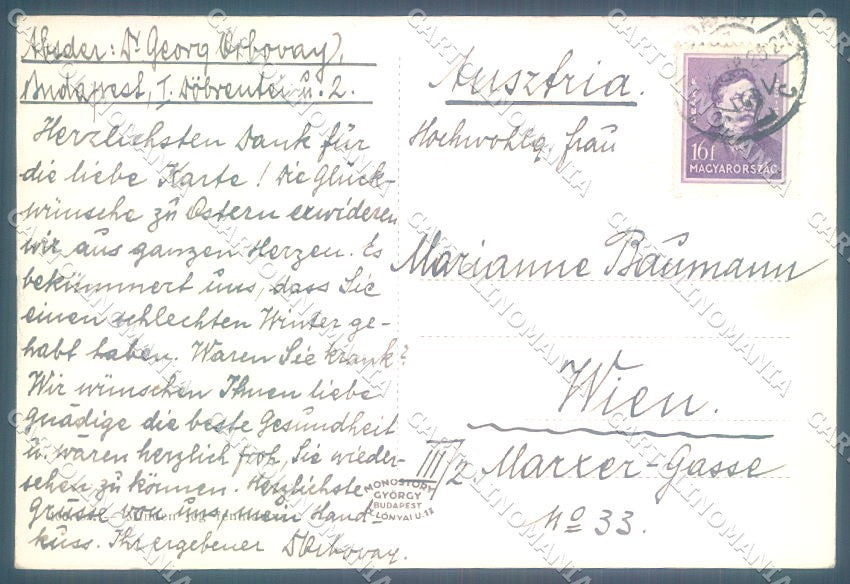 Absder: Dr Georg Orbovay,
Budapest, I. Döbrentei u. 2.
Herzlichsten Dank für
die liebe Karte! Die Glück-
wünsche zu Ostern erwideren
wir aus ganzen Herzen. Es
bekümmert uns, dass Sie
einen schlechten Winter ge-
habt haben. Waren Sie krank?
Wir wünschen Ihnen liebe
gnädige die beste Gesundheit
u. wären herzlich froh, Sie wieder-
sehen zu können. Herzlichste
Grüsse von uns, mein Hand-
kuss. Ihr ergebener DrOrbovay.
Ausztria.
Hochwohlg. Frau
Marianne Baumann
Wien.
III/2 Marxer-Gasse
No 33.
16f
MAGYARORSZÁG
MONOSTORY
GYÖRGY
BUDAPEST
LÓNYAI U. 13
CARTOLINOMANIA